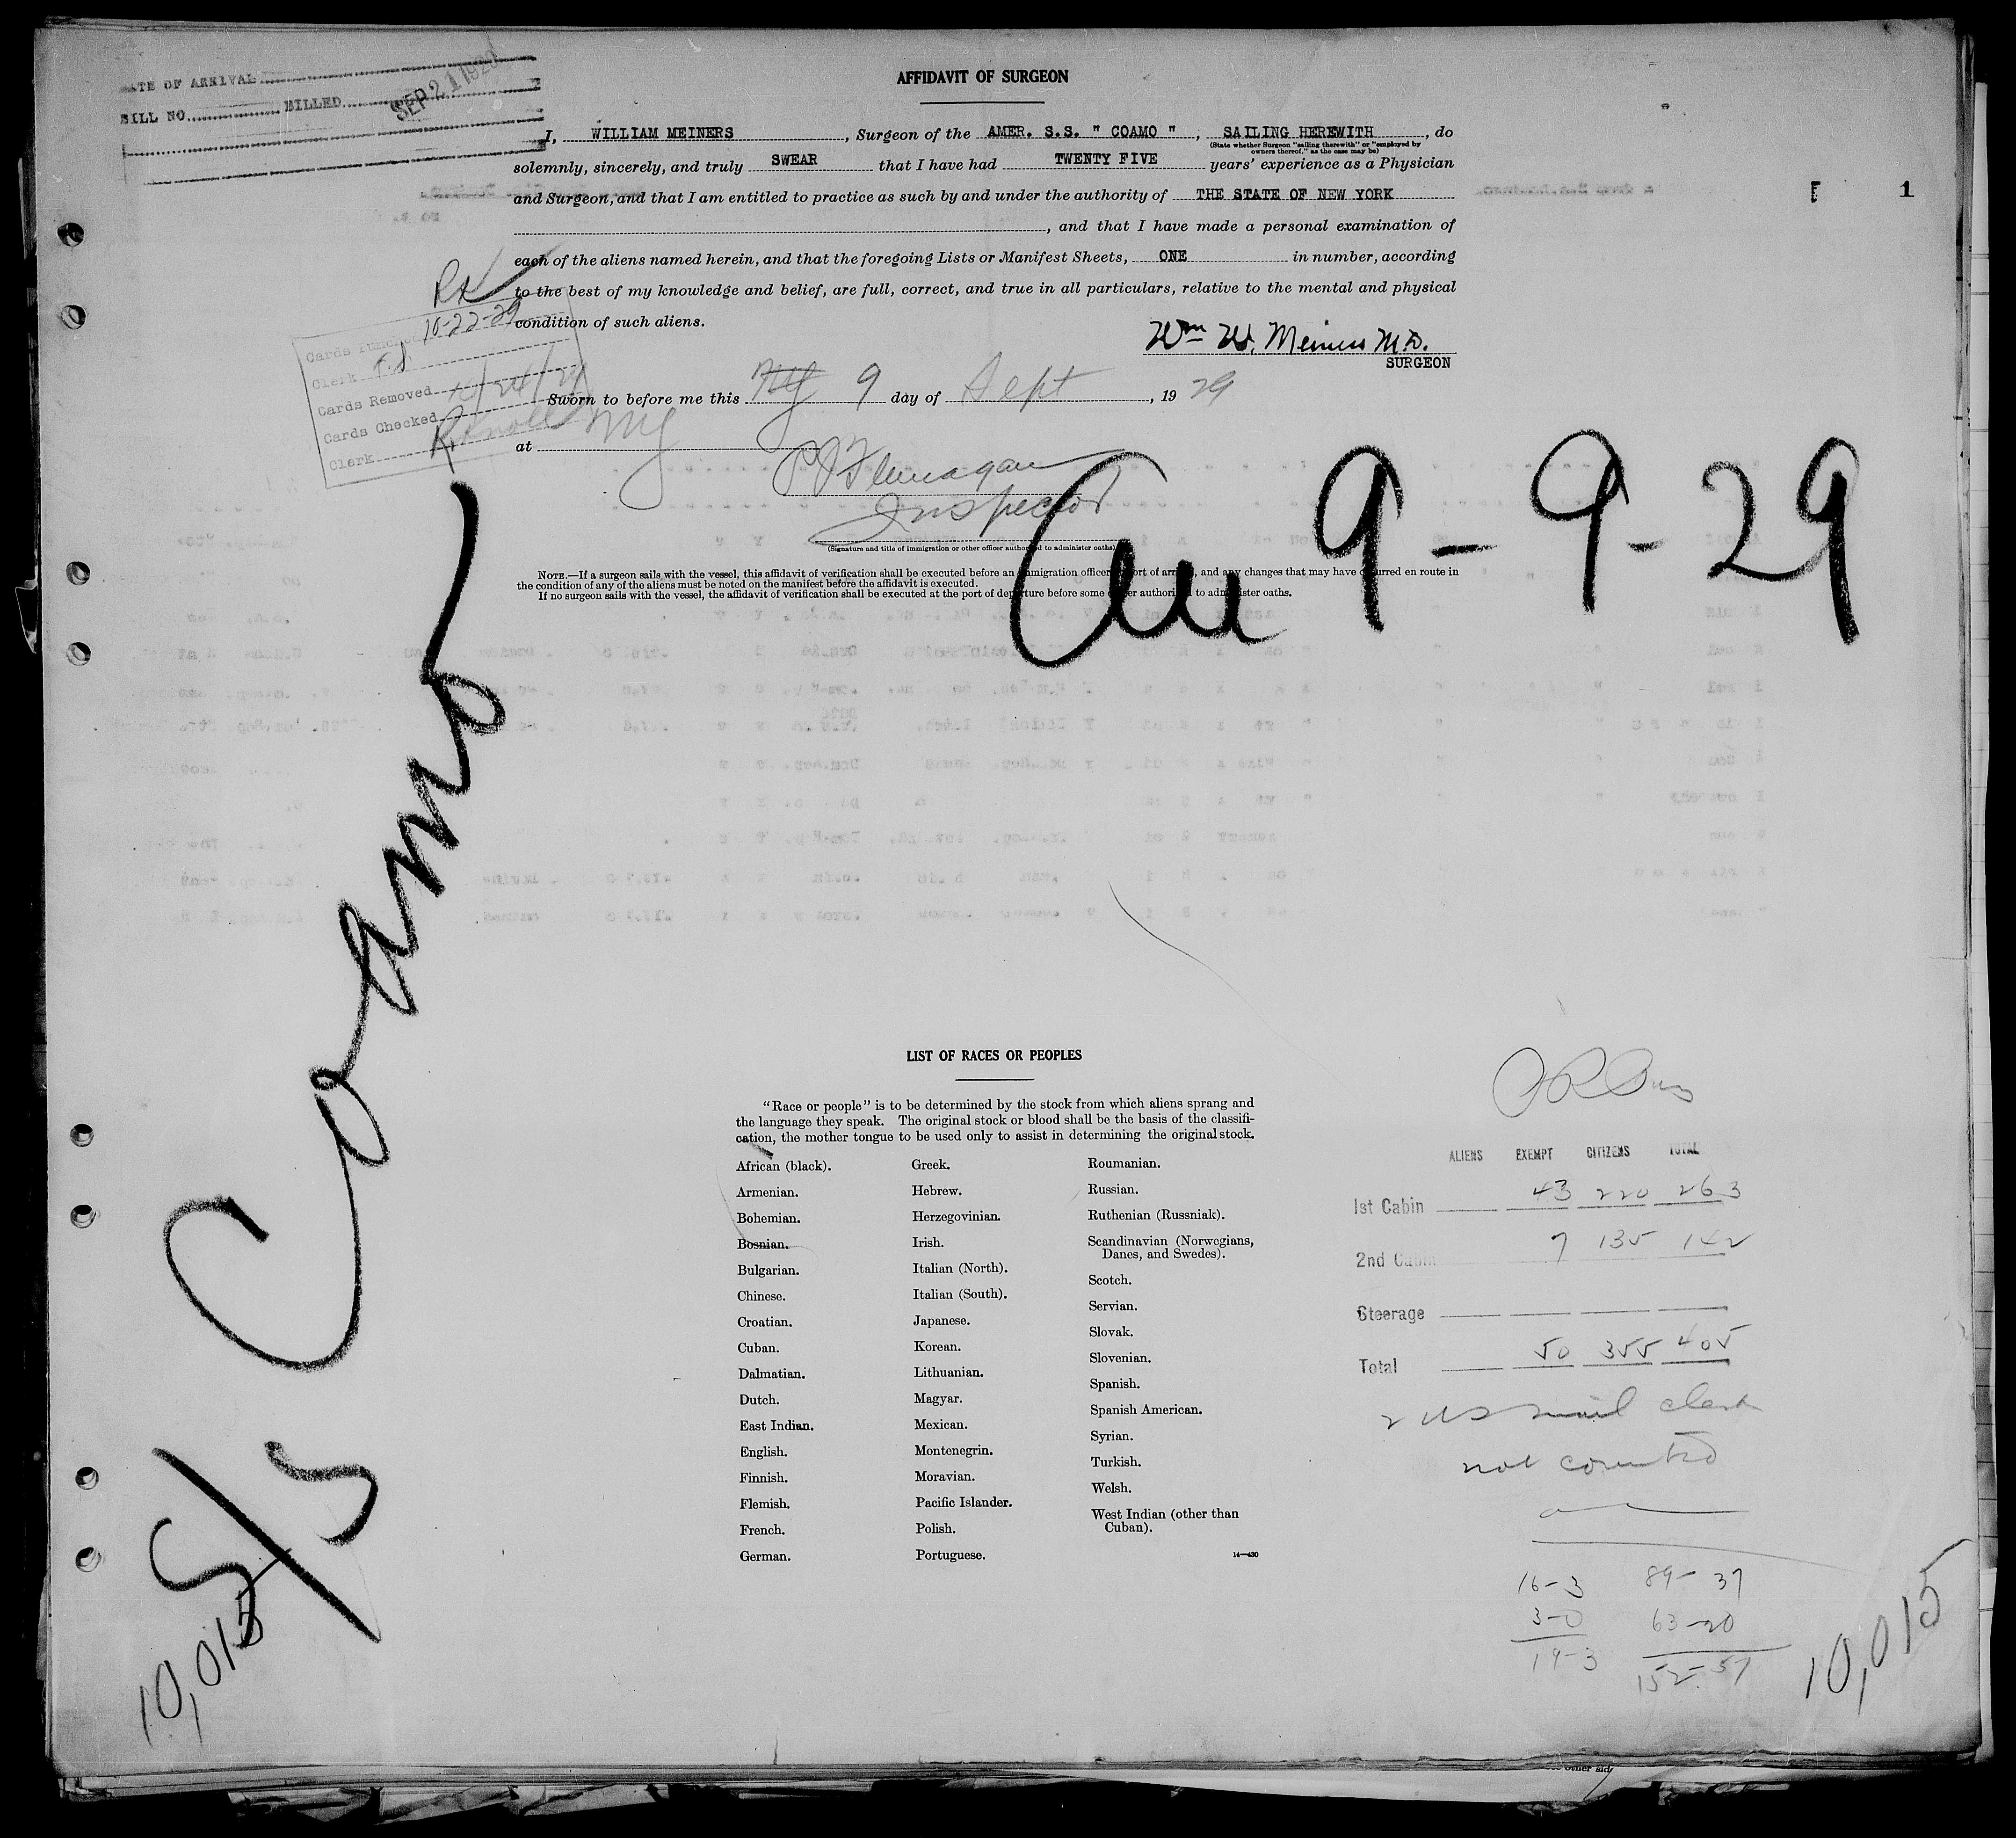 DATE OF ARRIVAL
BILL NO. BILLED SEP 21 1929
AFFIDAVIT OF SURGEON
I, WILLIAM MEINERS, Surgeon of the AMER. S.S. " COAMO ", SAILING HEREWITH, do
(State whether Surgeon "sailing therewith" or "employed by
owners thereof," as the case may be)
solemnly, sincerely, and truly SWEAR that I have had TWENTY FIVE years' experience as a Physician
and Surgeon, and that I am entitled to practice as such by and under the authority of THE STATE OF NEW YORK
1
, and that I have made a personal examination of
each of the aliens named herein, and that the foregoing Lists or Manifest Sheets, ONE in number, according
to the best of my knowledge and belief, are full, correct, and true in all particulars, relative to the mental and physical
condition of such aliens.
10-22-29
Cards Punched
Clerk
Cards Removed
Cards Checked
Clerk
Wm W. Meiners M.D.
SURGEON
Sworn to before me this 9 day of Sept, 1929
at
Flannagan
Inspector
(Signature and title of immigration or other officer authorized to administer oaths)
9-9-29
NOTE.—If a surgeon sails with the vessel, this affidavit of verification shall be executed before an immigration officer port of arrival, and any changes that may have occurred en route in
the condition of any of the aliens must be noted on the manifest before the affidavit is executed.
If no surgeon sails with the vessel, the affidavit of verification shall be executed at the port of departure before some officer authorized to administer oaths.
S/S Coamo
10,015
LIST OF RACES OR PEOPLES
"Race or people" is to be determined by the stock from which aliens sprang and
the language they speak. The original stock or blood shall be the basis of the classifi-
cation, the mother tongue to be used only to assist in determining the original stock.
African (black).
Armenian.
Bohemian.
Bosnian.
Bulgarian.
Chinese.
Croatian.
Cuban.
Dalmatian.
Dutch.
East Indian.
English.
Finnish.
Flemish.
French.
German.
Greek.
Hebrew.
Herzegovinian.
Irish.
Italian (North).
Italian (South).
Japanese.
Korean.
Lithuanian.
Magyar.
Mexican.
Montenegrin.
Moravian.
Pacific Islander.
Polish.
Portuguese.
Roumanian.
Russian.
Ruthenian (Russniak).
Scandinavian (Norwegians,
Danes, and Swedes).
Scotch.
Servian.
Slovak.
Slovenian.
Spanish.
Spanish American.
Syrian.
Turkish.
Welsh.
West Indian (other than
Cuban).
14—430
ALIENS EXEMPT CITIZENS TOTAL
1st Cabin 43 220 263
2nd Cabin 7 135 142
Steerage
Total 50 355 405
2 US mail clerk
not counted
16-3 89-37
3-0 63-20
19-3 152-57
10,015
other side